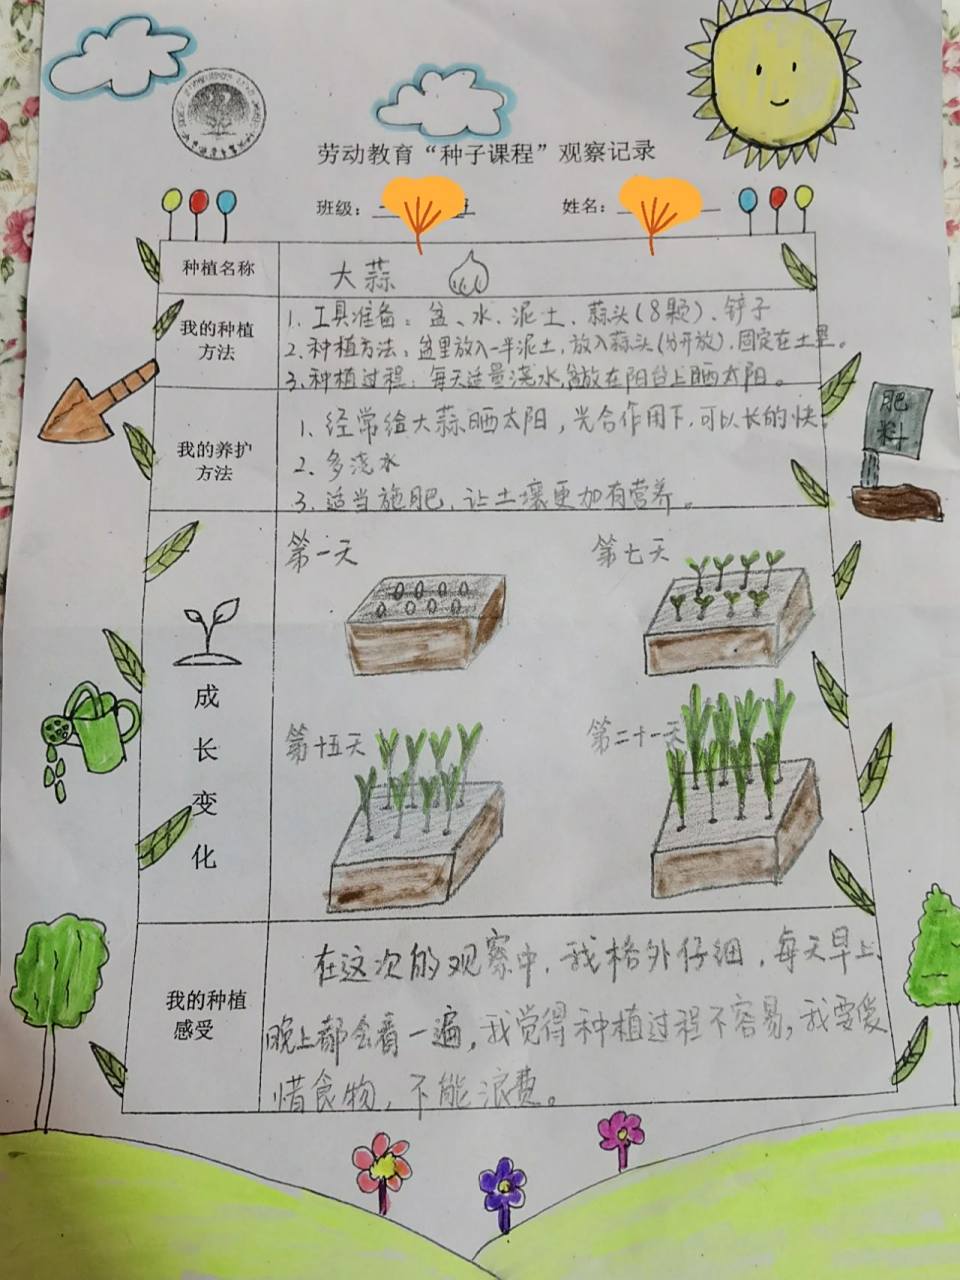 劳动教育“种子课程”观察记录
班级： 班 姓名：
种植名称 大蒜
我的种植方法
1. 工具准备：盆、水、泥土、蒜头(8颗)、铲子
2. 种植方法：盆里放入一半泥土，放入蒜头(分开放)，固定在土里。
3. 种植过程：每天适量浇水，盆放在阳台上晒太阳。
我的养护方法
1. 经常给大蒜晒太阳，光合作用下，可以长的快
2. 多浇水
3. 适当施肥，让土壤更加有营养。
肥料
成长变化
第一天 第七天
第十五天 第二十一天
我的种植感受
在这次的观察中，我格外仔细，每天早上、
晚上都会看一遍，我觉得种植过程不容易，我要爱
惜食物，不能浪费。